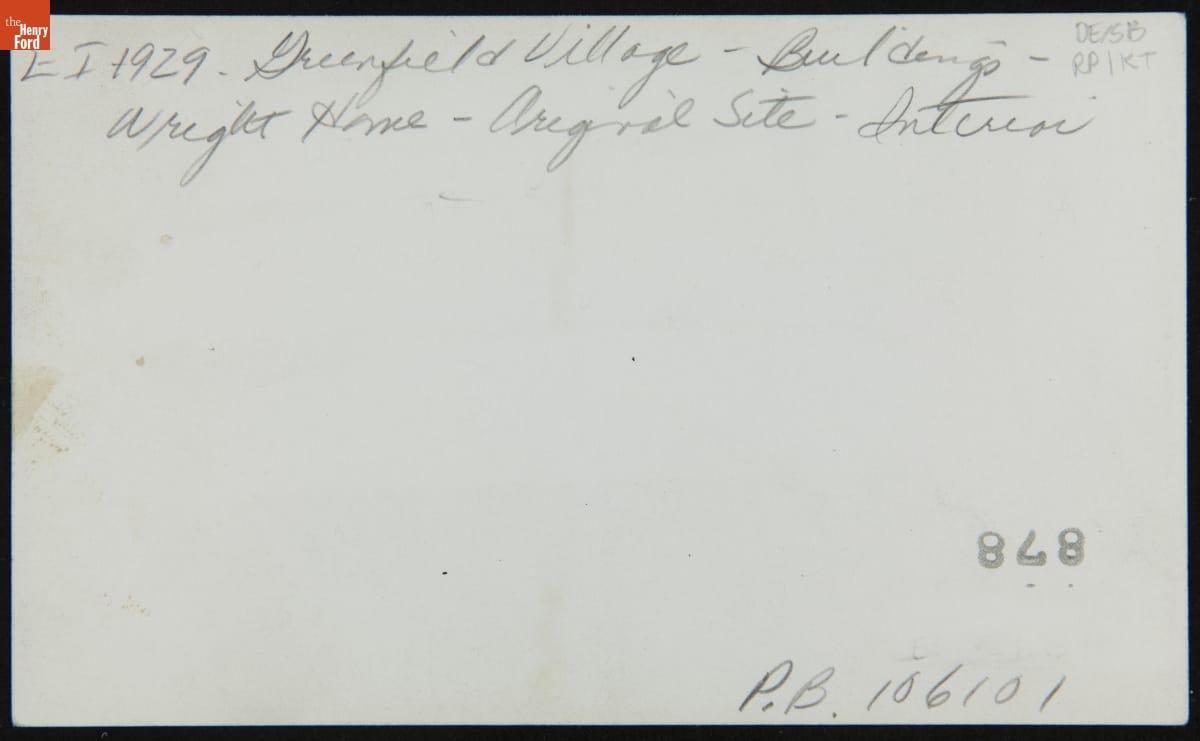 the
Henry
Ford
E I 1929. Greenfield Village - Buildings -
DE/SB
RP/KT
Wright Home - Original Site - Interior
878
P.B. 106101